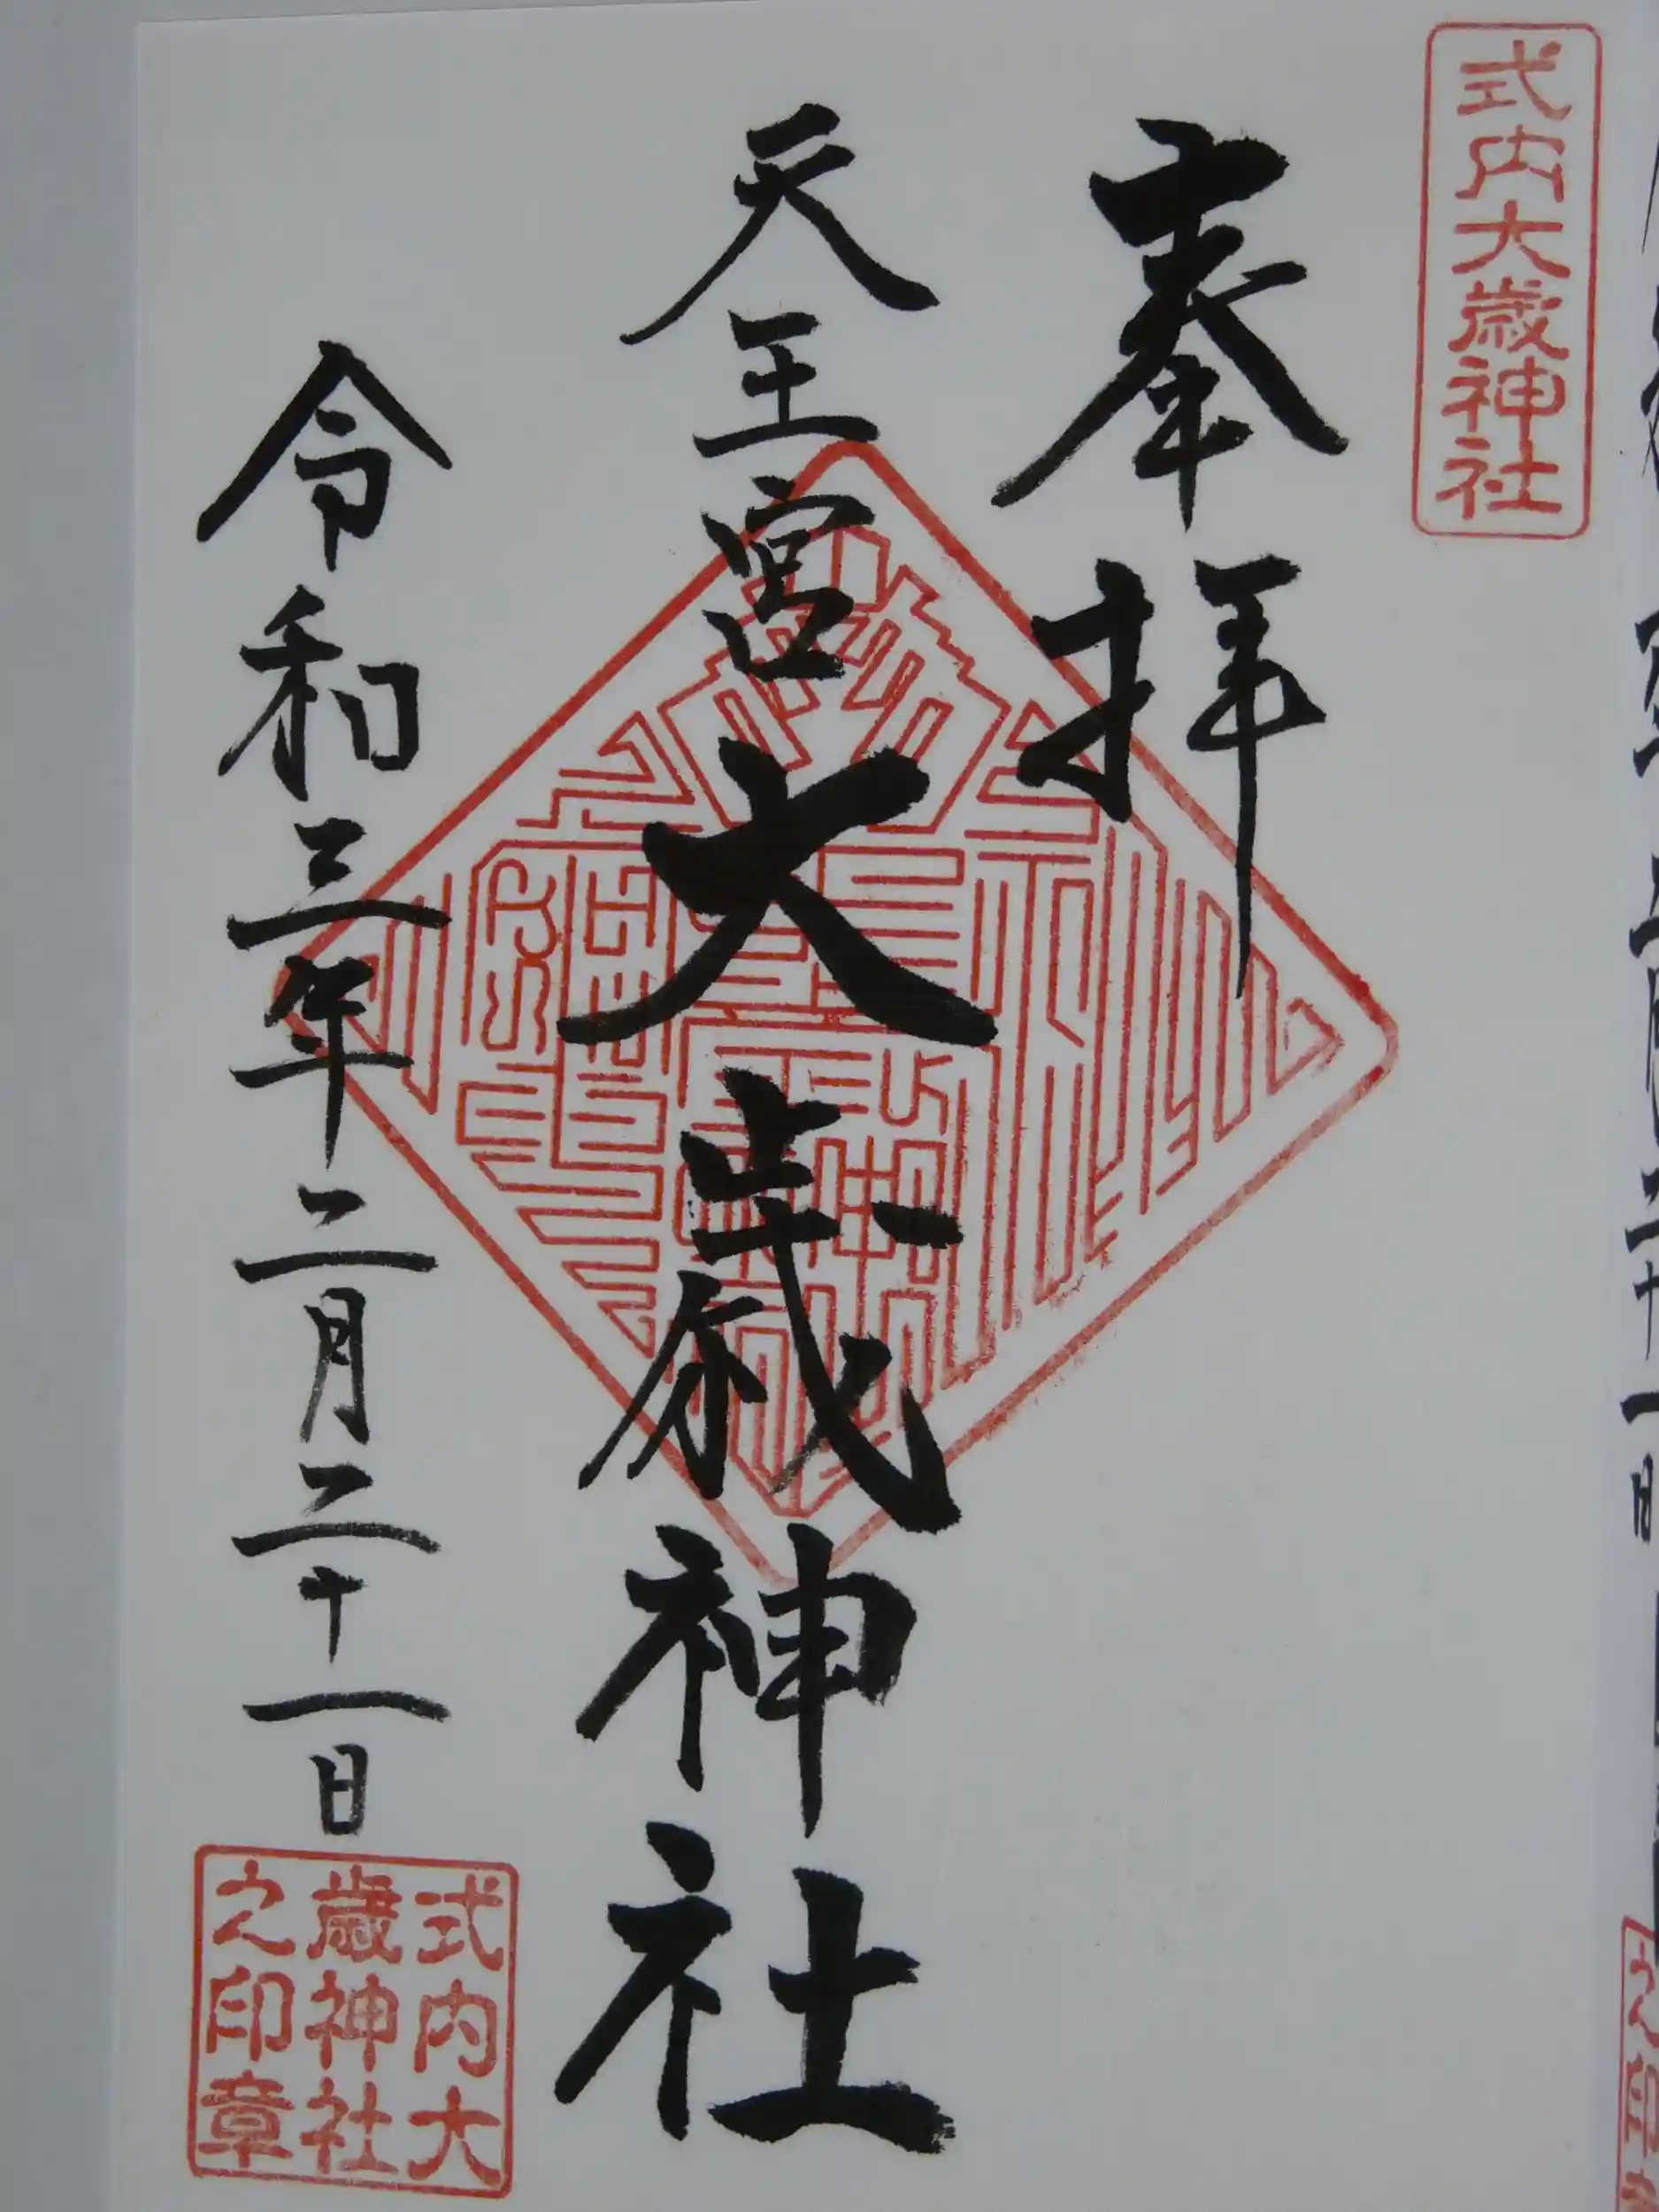 式内大歳神社
奉拝
天王宮大歳神社
令和三年二月二十一日
式内大
歳神社
之印章